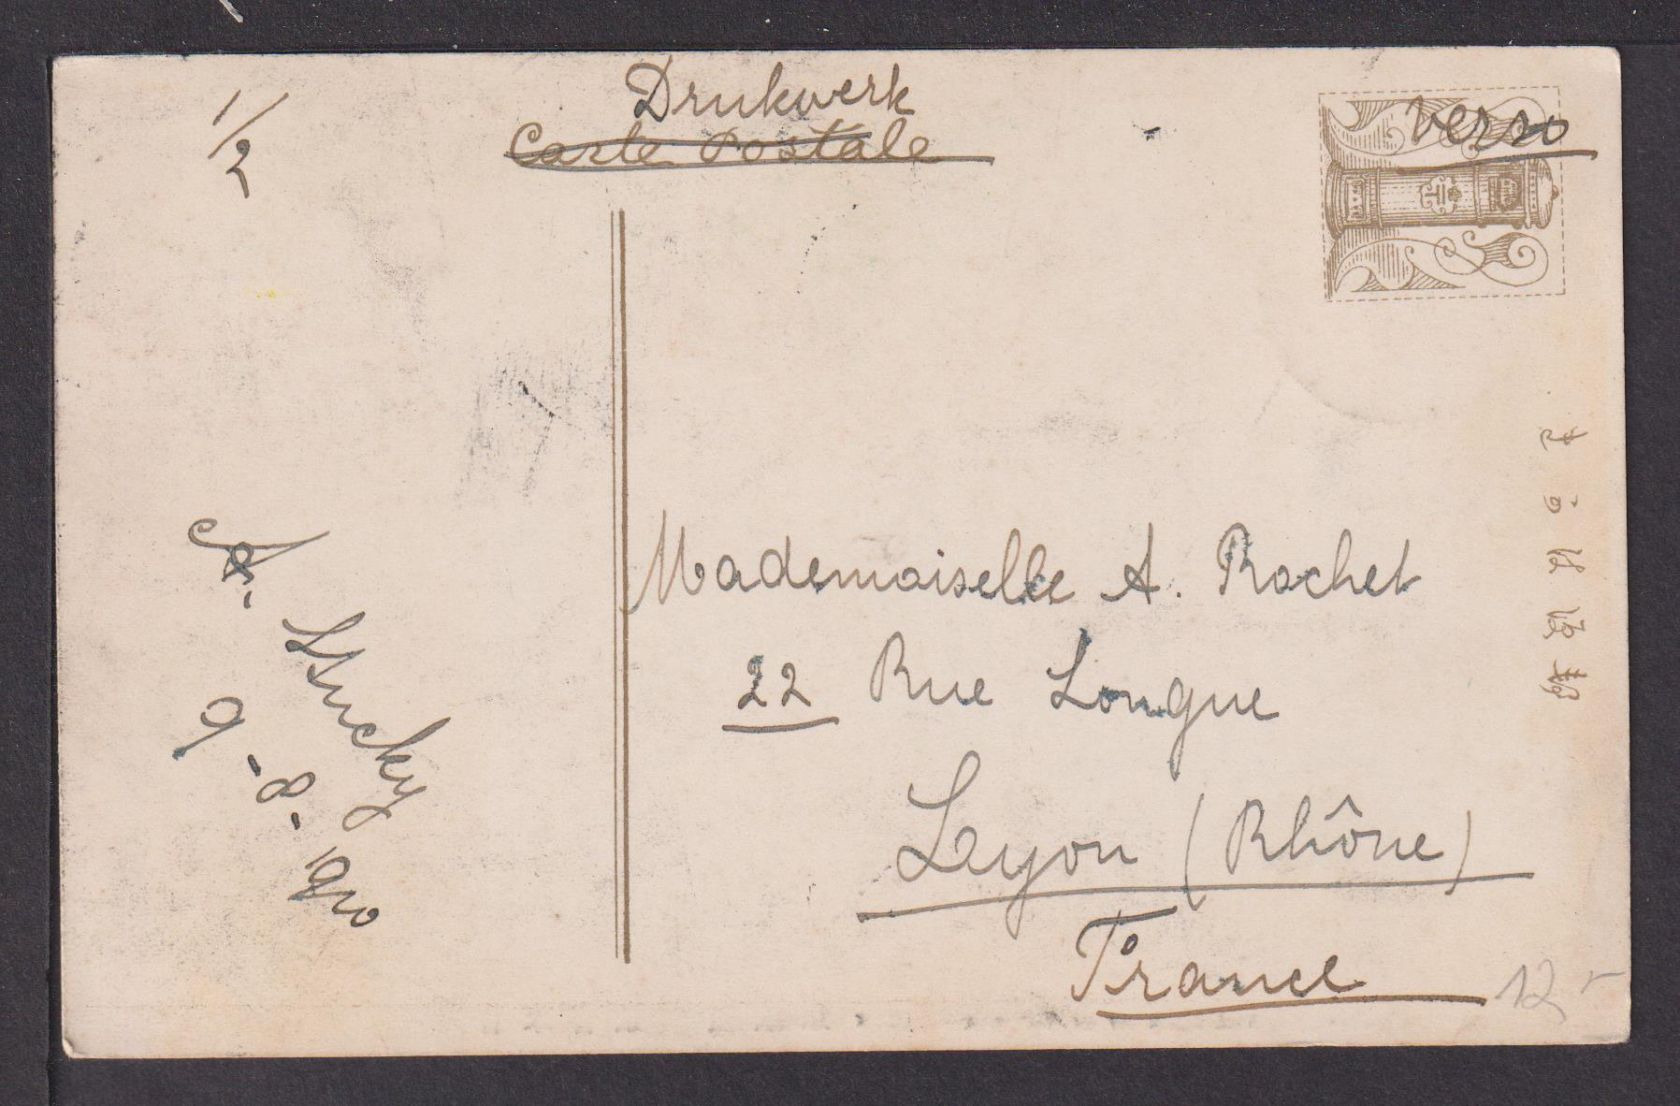 1/2
Drukwerk
Carte Postale
verso
Mademoiselle A. Rochet
22 Rue Longue
Lyon (Rhône)
France
A. Stucky
9-8-1910
12